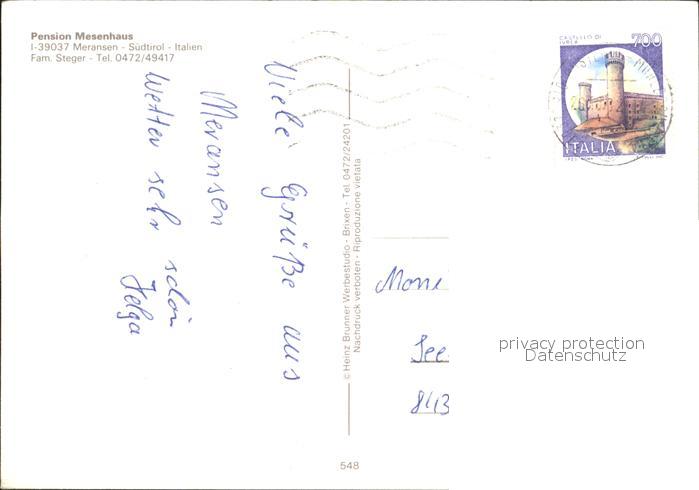 Pension Mesenhaus
I-39037 Meransen - Südtirol - Italien
Fam. Steger - Tel. 0472/49417
Viele Grüße aus
Meransen
Wetter sehr schön
Helga
© Heinz Brunner Werbestudio - Brixen - Tel. 0472/24201
Nachdruck verboten - Riproduzione vietata
CASTELLO DI
IVREA
700
ITALIA
Moni
See
843
privacy protection
Datenschutz
548